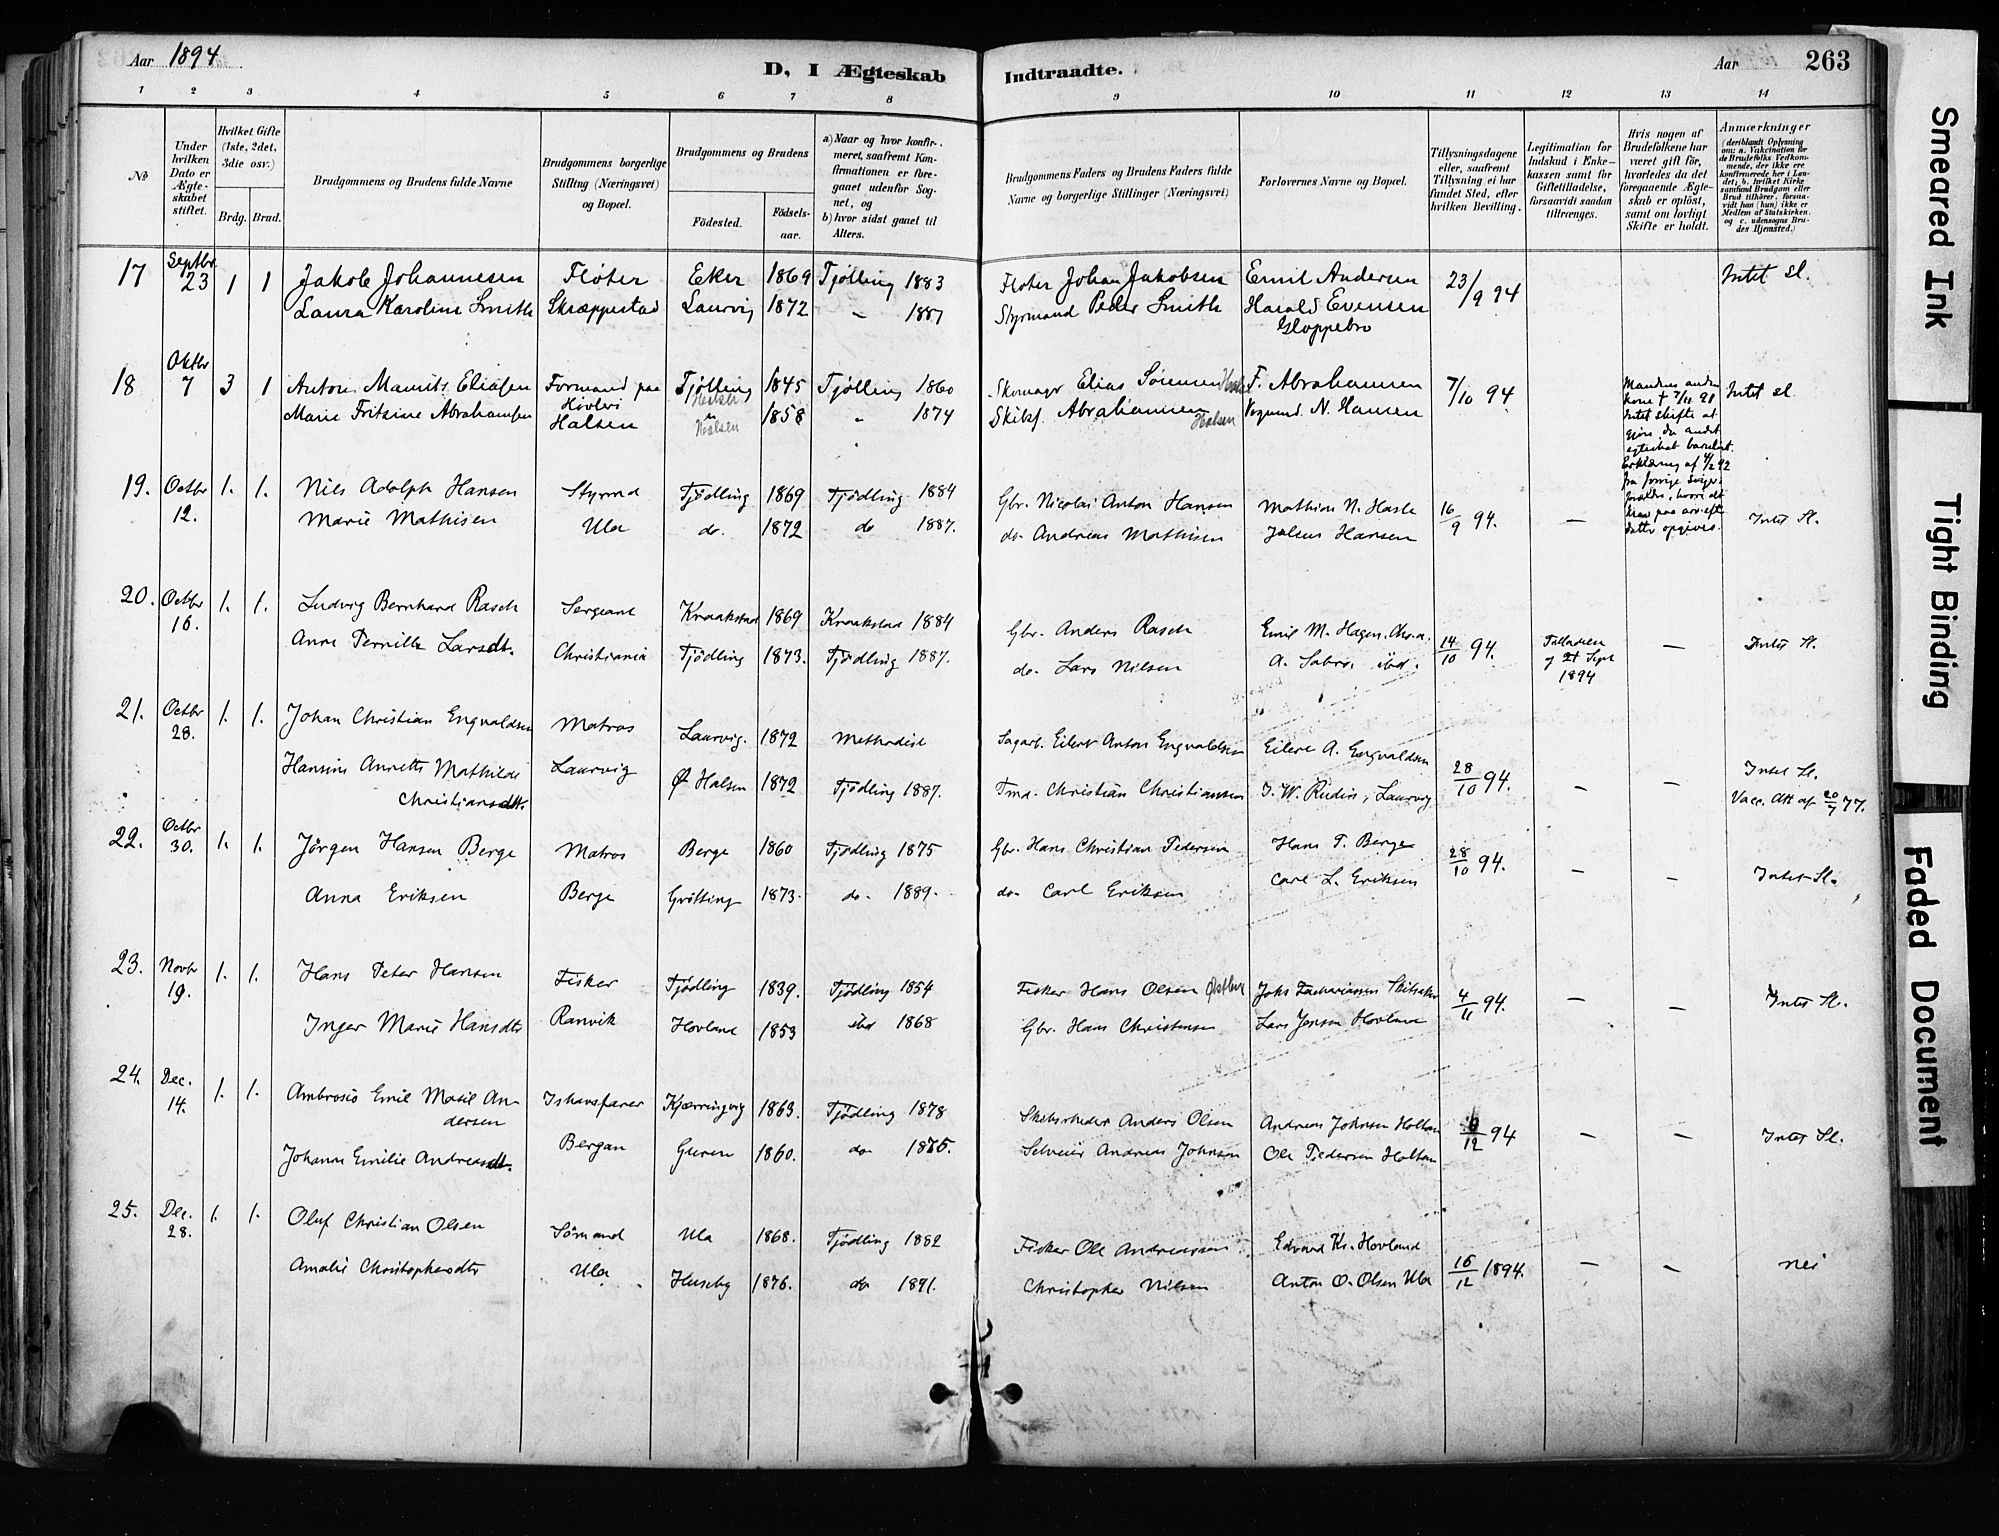 Aar 1894
D, I Ægteskab Indtraadte.
Aar 263
1 2 3 4 5 6 7 8 9 10 11 12 13 14
№
Under hvilken Dato er Ægteskabet stiftet.
Hvilket Gifte (1ste, 2det, 3die osv.)
Brdg. Brud.
Brudgommens og Brudens fulde Navne
Brudgommens borgerlige Stilling (Næringsvei) og Bopæl.
Brudgommens og Brudens
Fødested. Fødselsaar.
a) Naar og hvor konfirmeret, saafremt Konfirmationen er foregaaet udenfor Sognet, og
b) hvor sidst gaaet til Alters.
Brudgommens Faders og Brudens Faders fulde Navne og borgerlige Stillinger (Næringsvei)
Forlovernes Navne og Bopæl.
Tillysningsdagene eller, saafremt Tillysning ei har fundet Sted, efter hvilken Bevilling.
Legitimation for Indskud i Enkekassen samt for Giftetilladelse, forsaavidt saadan tiltrænges.
Hvis nogen af Brudefolkene har været gift før, hvorledes da det foregaaende Ægteskab er opløst, samt om lovligt Skifte er holdt.
Anmærkninger (deriblandt Oplysning om: a. Vakcination for de Brudefolks Vedkommende, der ikke ere konfirmerede her i Landet; b. hvilket Kirkesamfund Brudgom eller Brud tilhører, forsaavidt han (hun) ikke er Medlem af Statskirken, og c. udensogns Brudes Hjemsted.)
17 Septbr. 23 1 1 Jakob Johannesen Fløter Eker 1869 Tjølling 1883 Fløter Johan Jakobsen Emil Andersen 23/9 94 Intet sl.
Laura Karoline Smith Skræppestad Laurvig 1872 " 1887 Styrmand Peder Smith Harald Evensen
Gloppebro
18 Oktbr 7 3 1 Anton Maurits Eliasen Formand paa Tjølling 1845 Tjølling 1860 Skomagr Elias Sørensen F. Abrahamsen 7/10 94 Intet sl.
Marie Fritzine Abrahamsen Høvleri Halsen " Halsen 1858 " 1874 Skibsf. Abrahamsen Halsen N. Hansen
Mandens anden
kone † 7/11 91
Intet skifte at
gjøre, da andet
egteskab barnløst.
Erklæring af 4/2 92
fra forrige Sviger-
forældre, hvori de
krav paa arv efter
datter opgives.
19. Octbr 12. 1. 1. Nils Adolph Hansen Styrmd Tjødling 1869 Tjødling 1884 Gbr. Nicolai Anton Hansen Mathias N. Hasle 16/9 94. — Intet Sl.
Marie Mathisen Ula do. 1872 do 1887. do. Andreas Mathisen Julius Hansen
20. Octbr 16. 1. 1. Ludvig Bernhard Rasch Sergeant Kraakstad 1869 Kraakstad 1884 Gbr. Anders Rasch Emil M. Hagen, Chr.a. 14/10 94. Tilladelse af 21 Sept 1894 — Intet Sl.
Anne Pernille Larsdt. Christiania Tjødling 1873. Tjødling 1887. do. Lars Nilsen A. Sabro, ibd.
21. Octbr 28. 1. 1. Johan Christian Engvaldsen Matros Laurvig. 1872 Methodist Sagarb. Eilert Anton Engvaldsen Eilert A. Engvaldsen 28/10 94. — — Intet Sl.
Hansine Annette Mathilde Christiansdt. Laurvig Ø Halsen 1872 Tjødling 1887. Tmd. Christian Christiansen J. W. Rudin, Laurvig Vacc. Att af 20/7 77.
22. Octbr 30. 1. 1. Jørgen Hansen Berge Matros Berge 1860 Tjødling 1875 Gbr. Hans Christian Pedersen Hans P. Berge 28/10 94. — — Intet Sl.
Anna Eriksen Berge Grøtting 1873. do. 1889. do. Carl Eriksen Carl L. Eriksen
23. Novbr 19. 1. 1. Hans Peter Hansen Fisker Tjødling 1839. Tjødling 1854 Fisker Hans Olsen Østby Johs Zachariassen 4/11 94. — — Intet Sl.
Inger Marie Hansdtr Ranvik Hovland 1853 ibd 1868 Gbr. Hans Christensen Lars Jensen Hovland
24. Dec. 14. 1. 1. Ambrosio Emil Matil Andersen Ishavsfarer Kjærringvig 1863. Tjødling 1878 Skibsrheder Anders Olsen Andreas Johnsen Holtan 9/12 94 — — Intet Sl.
Johanne Emilie Andreasdt. Bergan Guren 1860. do 1875. Selveier Andreas Johnsen Ole Pedersen Holtan
25. Dec. 28. 1. 1. Oluf Christian Olsen Sømand Ula 1868. Tjødling 1882 Fisker Ole Andreassen Edvard Kr. Hovland 16/12 1894. — — nei
Amalie Christophersdtr Ula Huseby 1876. do 1891. Christopher Nilsen Anton O. Olsen Ula
Smeared Ink
Tight Binding
Faded Document